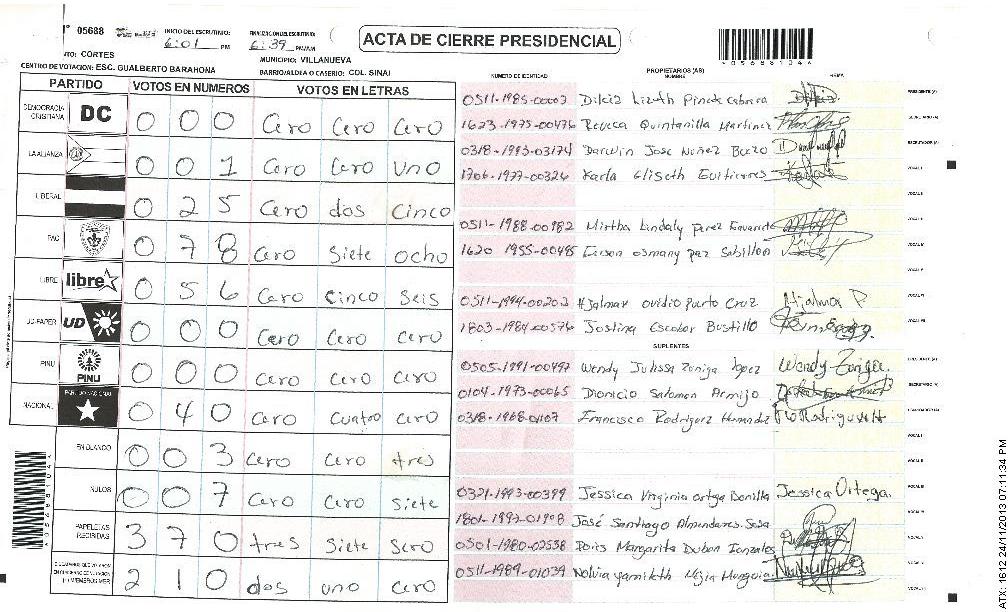 N° 05688 INICIO DEL ESCRUTINIO: 6:01 PM FINALIZACION DEL ESCRUTINIO: 6:39 PM/AM
ACTA DE CIERRE PRESIDENCIAL
CORTES MUNICIPIO: VILLANUEVA
CENTRO DE VOTACION: ESC. GUALBERTO BARAHONA BARRIO/ALDEA O CASERIO: COL. SINAI
PARTIDO VOTOS EN NUMEROS VOTOS EN LETRAS
DEMOCRACIA CRISTIANA DC 0 0 0 Cero Cero Cero
LA ALIANZA 0 0 1 Cero Cero Uno
LIBERAL 0 2 5 Cero dos Cinco
PAC 0 7 8 Cero Siete ocho
LIBRE libre 0 5 6 Cero Cinco Seis
UD-FAPER UD 0 0 0 Cero Cero Cero
PINU PINU 0 0 0 Cero Cero Cero
NACIONAL PARTIDO NACIONAL 0 4 0 Cero Cuatro Cero
EN BLANCO 0 0 3 Cero Cero tres
NULOS 0 0 7 Cero Cero siete
PAPELETAS RECIBIDAS 3 7 0 tres Siete Sero
2 1 0 dos uno Cero
NUMERO DE IDENTIDAD PROPIETARIOS (AS) NOMBRE FIRMA
0511-1985-00003 Lizeth Pineda Cabrera
1623-1975-00476 Reveca Quintanilla Martinez
0318-1993-03174 Darwin Jose Nuñez
1706-1977-00324 Karla Eliseth Gutierres
0511-1988-00982 Mirtha Lindaly perez
1620 1955-00485 osmany paz Sabillon
0511-1994-00203 Hjalmar Ovidio Puerto Cruz Hjalmar P.
1803-1984-00576 Jostina Escobar Bustillo
SUPLENTES
0505-1991-00497 Wendy Julissa Zoniga lopez Wendy Zoniga.
0104-1973-00065 Dionicio Salomon Armijo
0318-1968-01107 Francisco Rodriguez Hernandez
0321-1993-00399 Jessica Virginia ortega Bonilla Jessica Ortega.
1801-1992-01908 José Santiago Almendares Sosa
0501-1980-02538 Doris Margarita Dubon Gonzales
0511-1989-01039 Nolvia yamileth Mejia Munguia
ATX: 1612 24/11/2013 07:11:34 PM